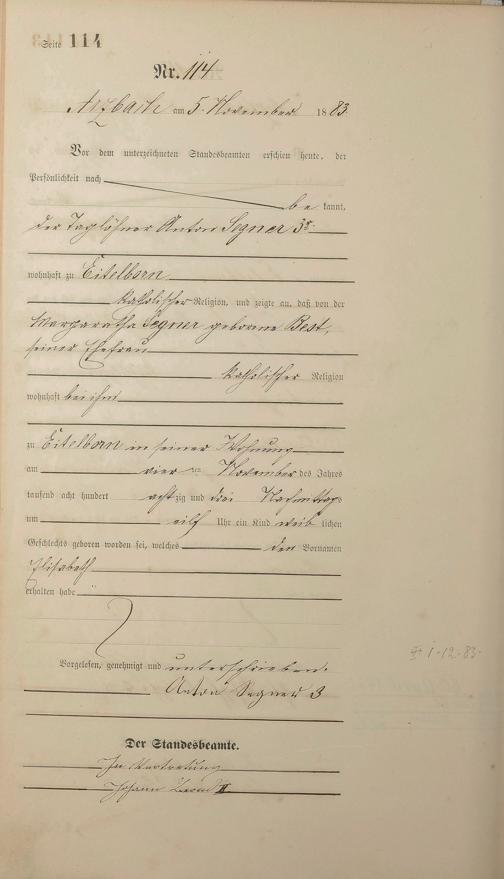 Seite 114
Nr. 114
Arzbach am 5. November 1883
Vor dem unterzeichneten Standesbeamten erschien heute, der
Persönlichkeit nach
be kannt,
der Taglöhner Anton Segner 3r
wohnhaft zu Eitelborn
katholischer Religion, und zeigte an, daß von der
Margaratha Segner geborene Best,
seiner Ehefrau
katholischer Religion
wohnhaft bei ihm
zu Eitelborn in seiner Wohnung
am vier ten November des Jahres
tausend acht hundert achtzig und drei Nachmittags
um eilf Uhr ein Kind weib lichen
Geschlechts geboren worden sei, welches den Vornamen
Elisabeth
erhalten habe
Vorgelesen, genehmigt und unterschrieben.
Anton Segner 3
Der Standesbeamte.
In Vertretung
Johann II
1-12-83